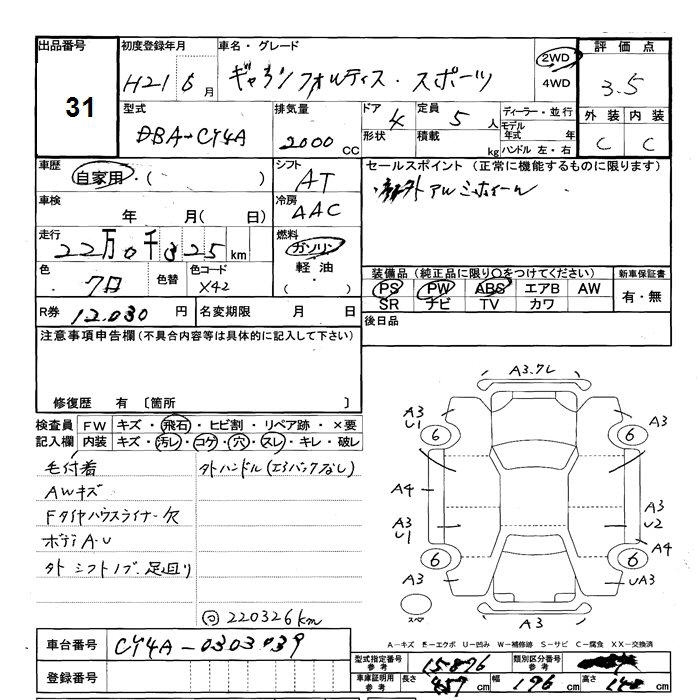 出品番号 初度登録年月 車名・グレード 評価点
31
H21 6月 ギャランフォルティス・スポーツ 2WD 4WD 3.5
型式 排気量 ドア 4 定員 5人 ディーラー・並行 外装 内装
DBA-CY4A 2000cc 形状 積載 kg モデル年式 年 ハンドル 左・右 C C
車歴 自家用・( ) シフト AT セールスポイント(正常に機能するものに限ります)
社外アルミホイール
車検 年 月( 日) 冷房 AAC
走行 22万0千325km 燃料 ガソリン 軽油 ( ・ )
色 クロ 色替 色コード X42
装備品(純正品に限り○をつけてください) 新車保証書
PS PW ABS エアB AW 有・無
SR ナビ TV カワ
R券 12,030円 名変期限 月 日 後日品
注意事項申告欄(不具合内容等は具体的に記入して下さい)
修復歴 有 〔箇所 〕
検査員 FW キズ・飛石・ヒビ割・リペア跡・×要
記入欄 内装 キズ・汚レ・コゲ・穴・スレ・キレ・破レ
毛付着 外ハンドル(エアバックなし)
AWキズ
Fタイヤハウスライナー欠
ボディA・U
外シフトノブ、足廻り
220326km
A3.ワレ
A3 U1 6 6 A3
A4
A3 U1 A3 U2
A4
6 6
A3 UA3
スペア A3
A-キズ E-エクボ U-凹み W-補修跡 S-サビ C-腐食 XX-交換済
車台番号 CY4A-0303039
登録番号
型式指定番号 参考 15896 類別区分番号 参考
車庫証明用 参考 長さ 457cm 幅 176cm 高さ 148cm